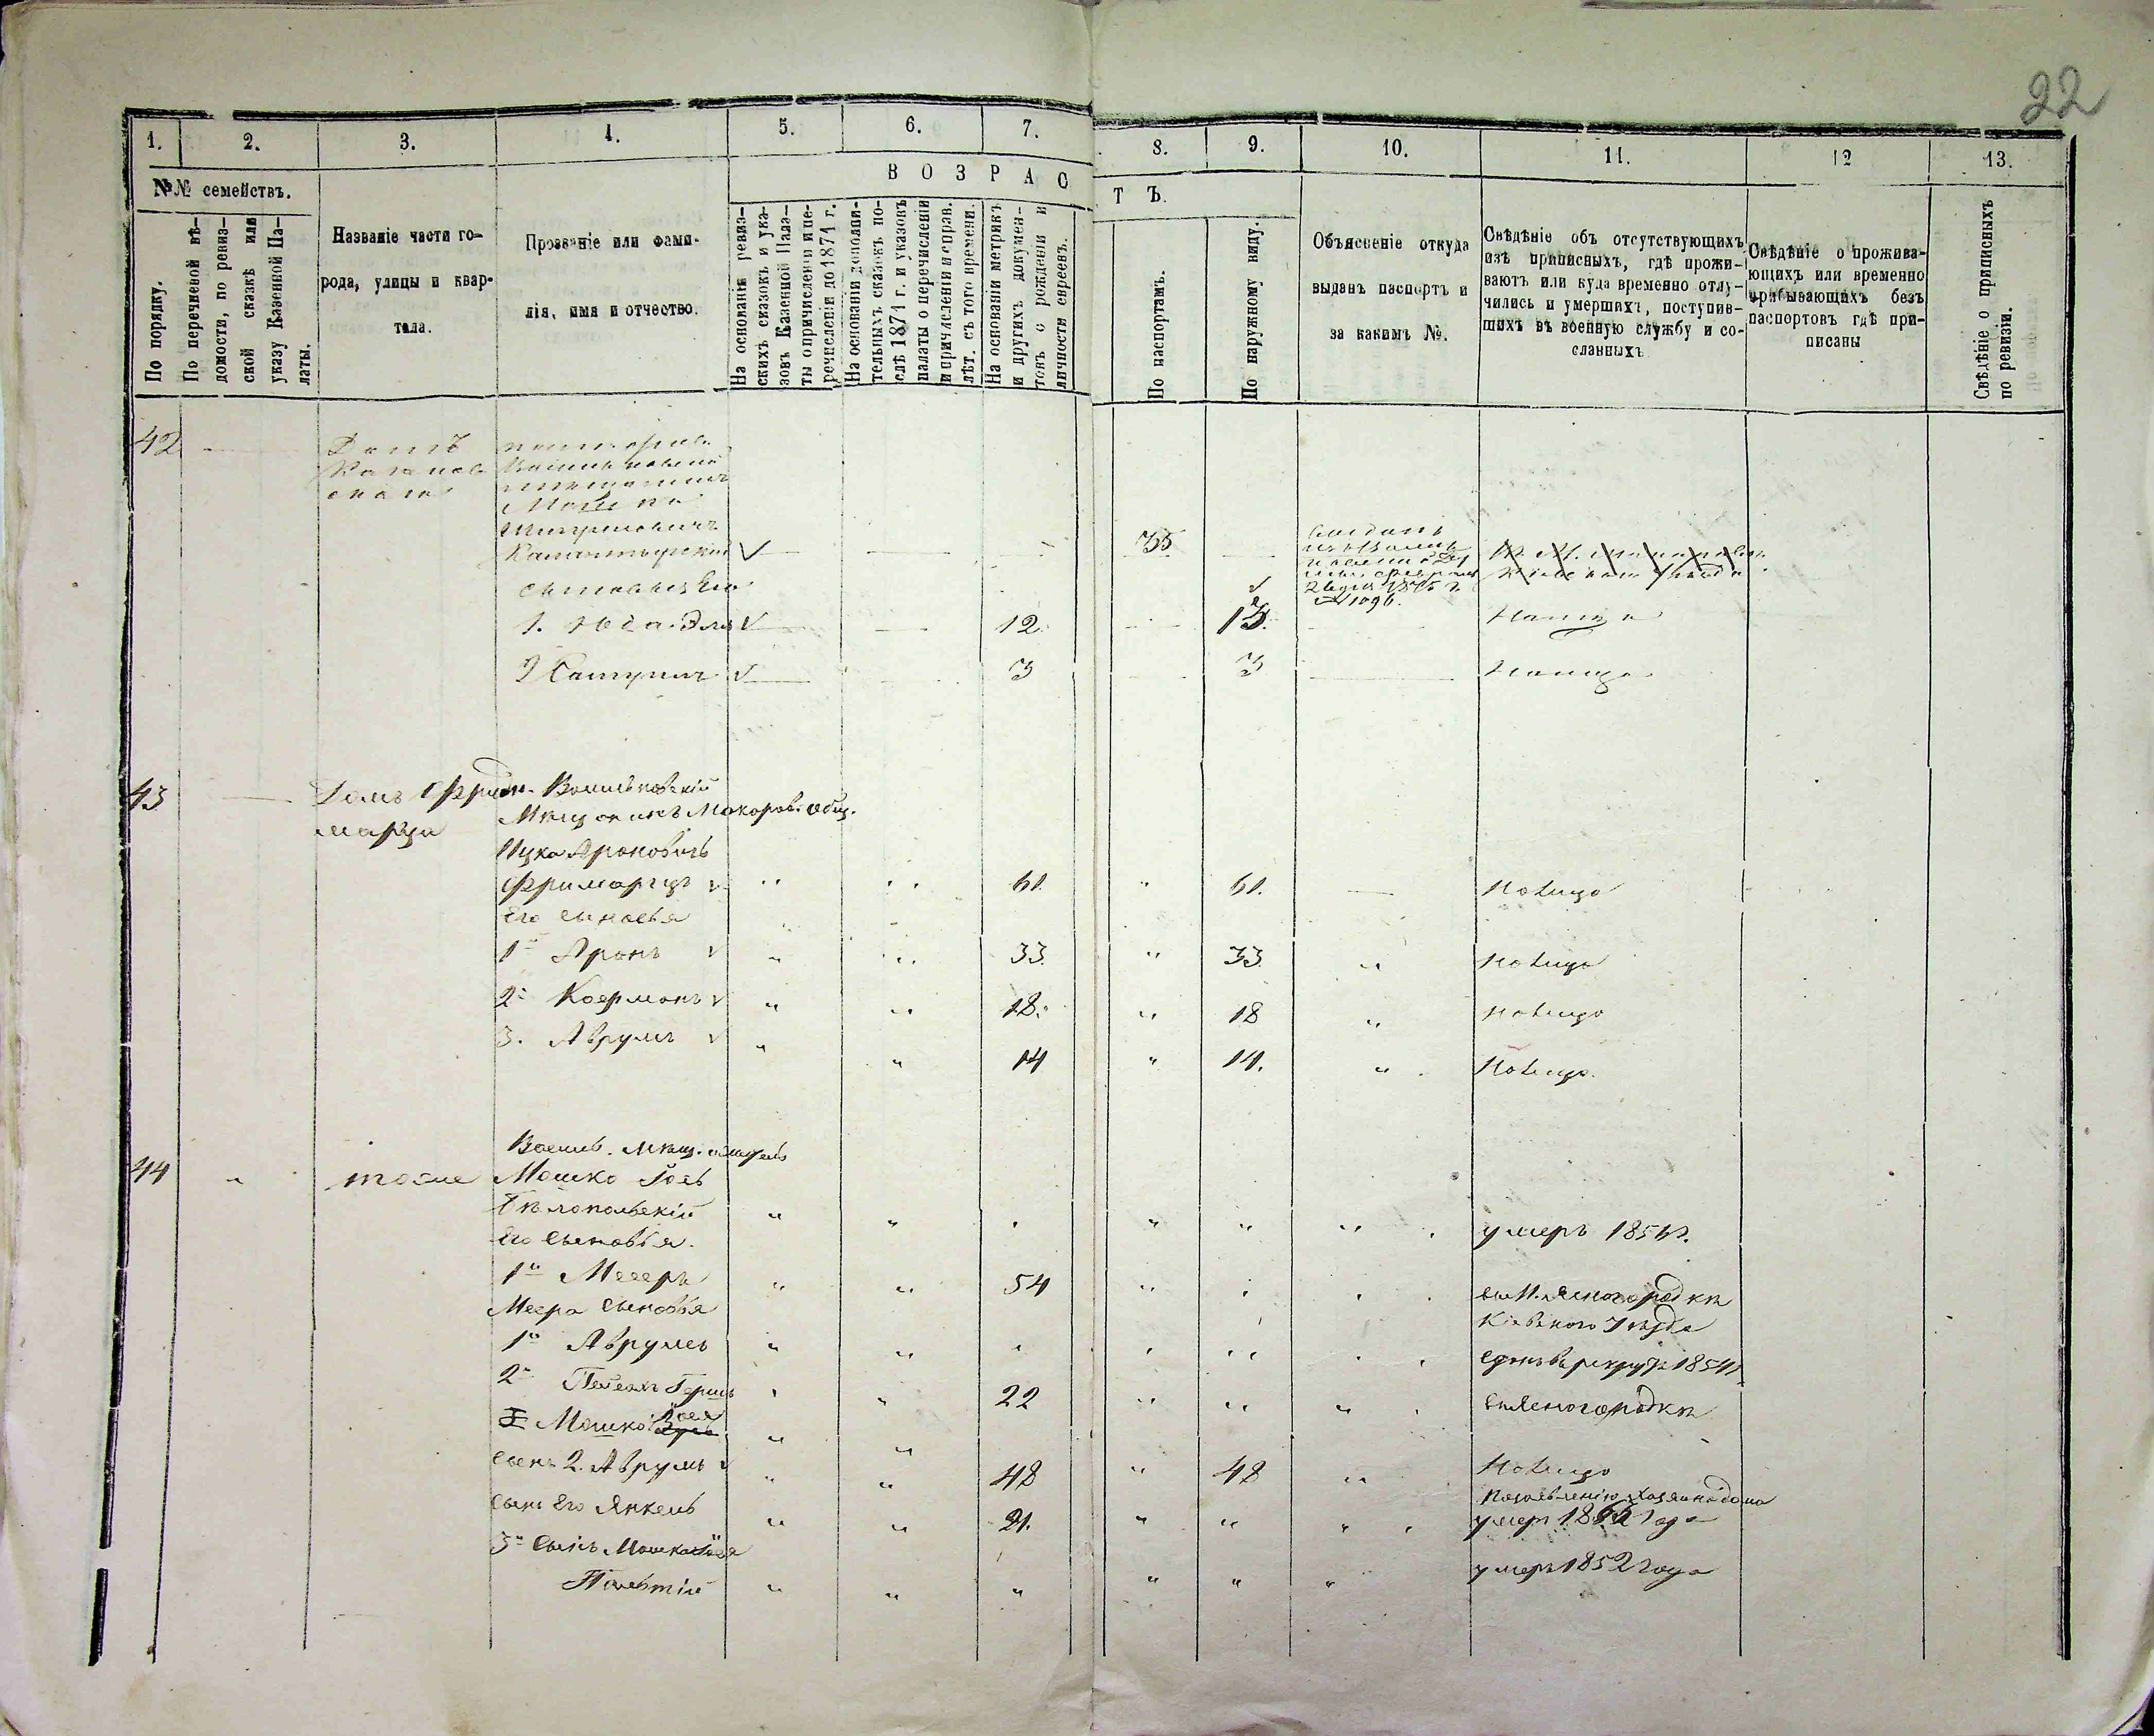 22
1. 2. 3. 4. 5. 6. 7. 8. 9. 10. 11. 12 13.
№№ семействъ.
По порядку.
По перечневой вѣ-
домости, по ревиз-
ской сказкѣ или
указу Казенной Па-
латы.
Названіе части го-
рода, улицы и квар-
тала.
Прозваніе или фами-
лія, имя и отчество.
ВОЗРАСТЪ.
На основаніи ревиз-
скихъ сказокъ и ука-
зовъ Казенной Пала-
ты о причисленіи и пе-
речисленіи до 1874 г.
На основаніи дополни-
тельныхъ сказокъ по-
слѣ 1874 г. и указовъ
палаты о перечисленіи
и причисленіи и справ.
лѣт. съ того времени.
На основаніи метрикъ
и другихъ докумен-
товъ о рожденіи и
личности евреевъ.
По паспортамъ.
По наружному виду.
Объясненіе откуда
выданъ паспортъ и
за какимъ №.
Свѣдѣніе объ отсутствующихъ
изъ приписныхъ, гдѣ прожи-
ваютъ или куда временно отлу-
чились и умершихъ, поступив-
шихъ въ военную службу и со-
сланныхъ
Свѣдѣніе о прожива-
ющихъ или временно
прибывающихъ безъ
паспортовъ гдѣ при-
писаны
Свѣдѣніе о приписныхъ
по ревизіи.
42 Домъ
Мошко
сыновья Его
35
№ 1096.
1. Юда-Эля 12 13. Налицо
2 Самуил 3 3 Налицо
43 Домъ Фри Васильковскій
марца Мѣщанинъ Макаров. общ.
Ицка Ароновичъ
Фримарцъ 61. " 61. Налицо
Его сыновья
1й Аронъ " " 33. " 33 " Налицо
2й " " 18. " 18 " Налицо
3. Аврумъ " " 14 " 14. " Налицо.
Васильк. Мѣщ.
44 " тоже Мошко Іось
Бѣлопольскій " " " " " умеръ 185 г.
Его сыновья.
1й Мееръ " " 54 " въ М. Ясногородкѣ
Меера сыновья Кіевского Уѣзда
1й Аврумъ " " " " сданъ въ рекруты 1854 г.
2й Пейсахъ Гершъ " 22 " " " въ Ясногородкѣ
Мошко " "
сынъ 2. Аврумъ " " 48 " 48 " Налицо
по заявленію хозяина дома
сынъ Его Янкель " " 21. " " " умеръ 1866 года
3й Сынъ Мошка Іося
" " " " " " умеръ 1852 года